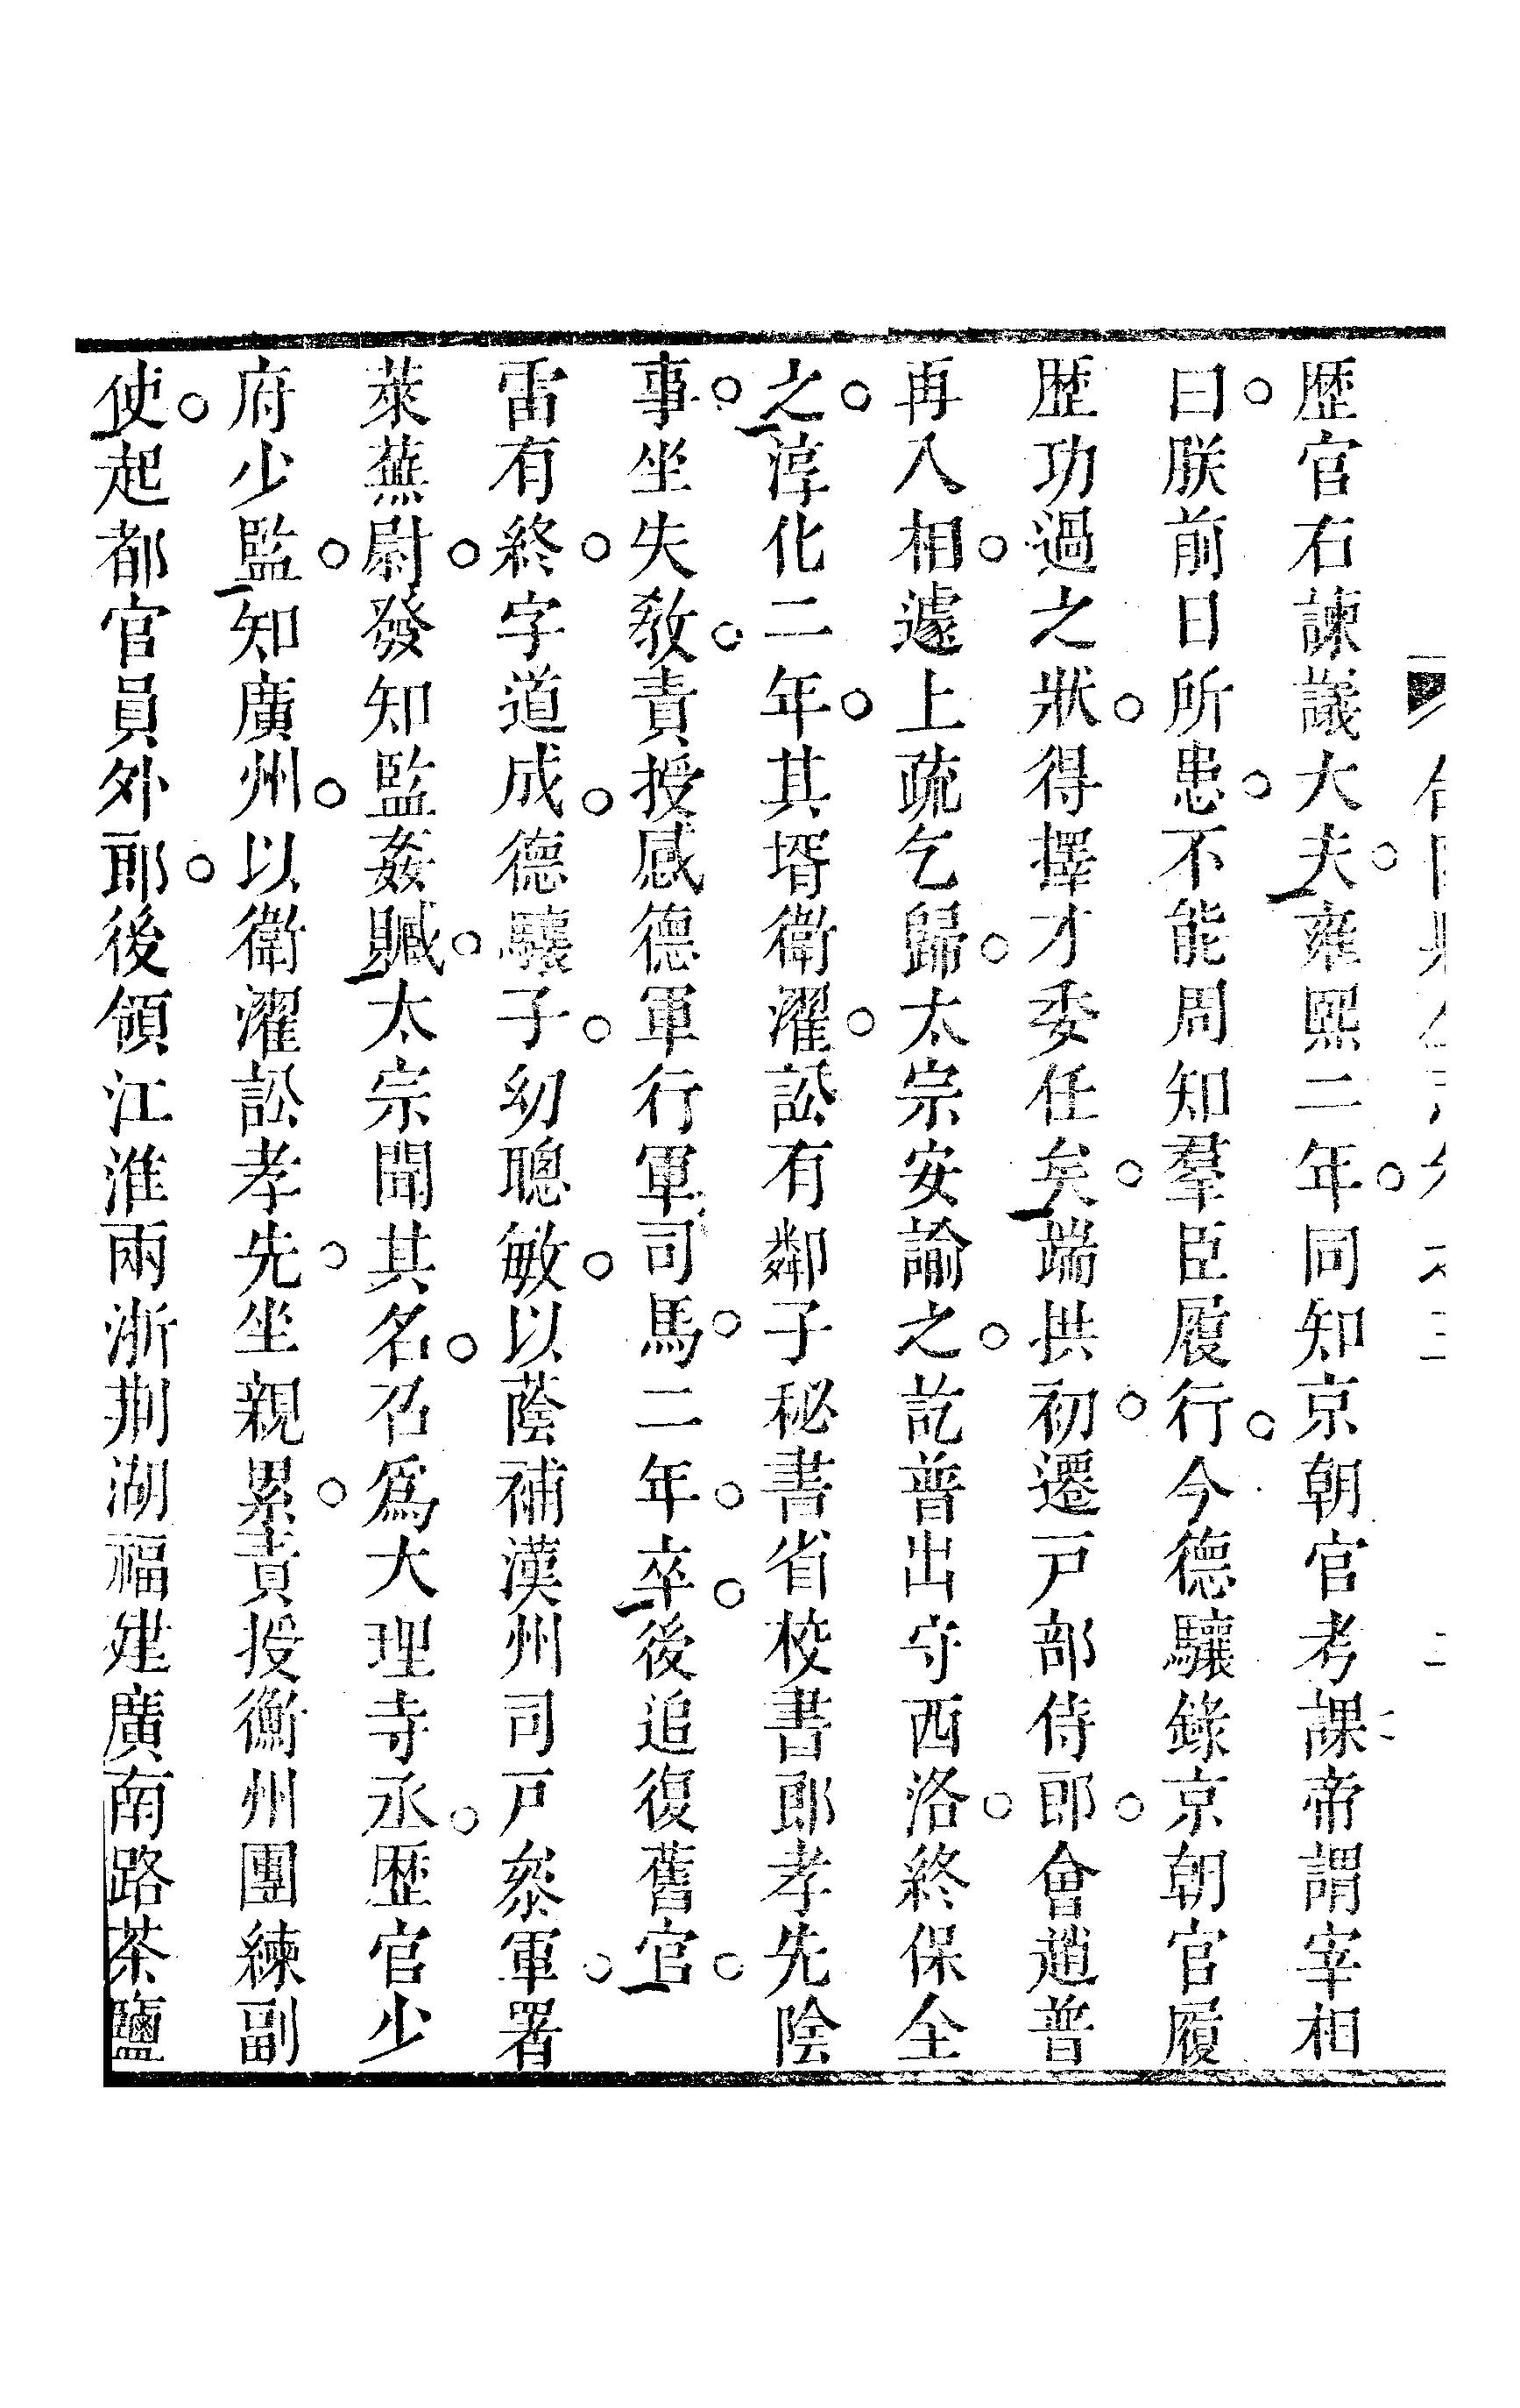 歷官右諫議大夫○雍熙二年○同知京朝官考課帝謂宰相
曰○朕前日所患○不能周知羣臣履行○今德驤錄京朝官履
歷功過之狀○得擇才委任矣○端拱初○遷戸部侍郎○會趙普
再入相○遽上疏乞歸○太宗安諭之○訖普出守西洛○終保全
之○淳化二年○其壻衛濯○訟有鄰子秘書省校書郎孝先陰
事○坐失敎○責授感德軍行軍司馬○二年○卒○後追復舊官○
雷有終○字道成○德驤子○幼聰敏○以蔭補漢州司戸叅軍○署
萊蕪尉○發知監姦贓○太宗聞其名○召爲大理寺丞○歷官少
府少監○知廣州○以衛濯訟孝先○坐親累○責授衡州團練副
使○起都官員外郎○後領江淮兩浙荆湖福建廣南路茶鹽